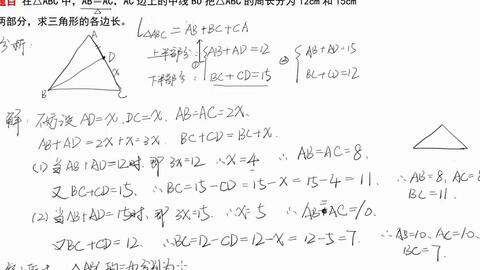 题目 在△ABC 中，AB=AC，AC 边上的中线 BD 把△ABC 的周长分为 12cm 和 15cm
两部分，求三角形的各边长。
L△ABC = AB+BC+CA
分析：
上半部分：① { AB+AD=12
下半部分： BC+CD=15
② { AB+AD=15
BC+CD=12
A
D
x
B
C
解：不妨设 AD=x, DC=x, AB=AC=2x,
AB+AD=2x+x=3x BC+CD=BC+x.
(1) 当AB+AD=12时, 即 3x=12 ∴x=4 ∴ AB=AC=8,
又BC+CD=15, ∴BC=15-CD=15-x=15-4=11.
∴ AB=8, AC=8
BC=11.
(2) 当AB+AD=15时, 即 3x=15, ∴x=5 ∴ AB=AC=10.
又BC+CD=12, ∴BC=12-CD=12-x=12-5=7.
∴AB=10, AC=10.
BC=7.
△ABC的三边分别为